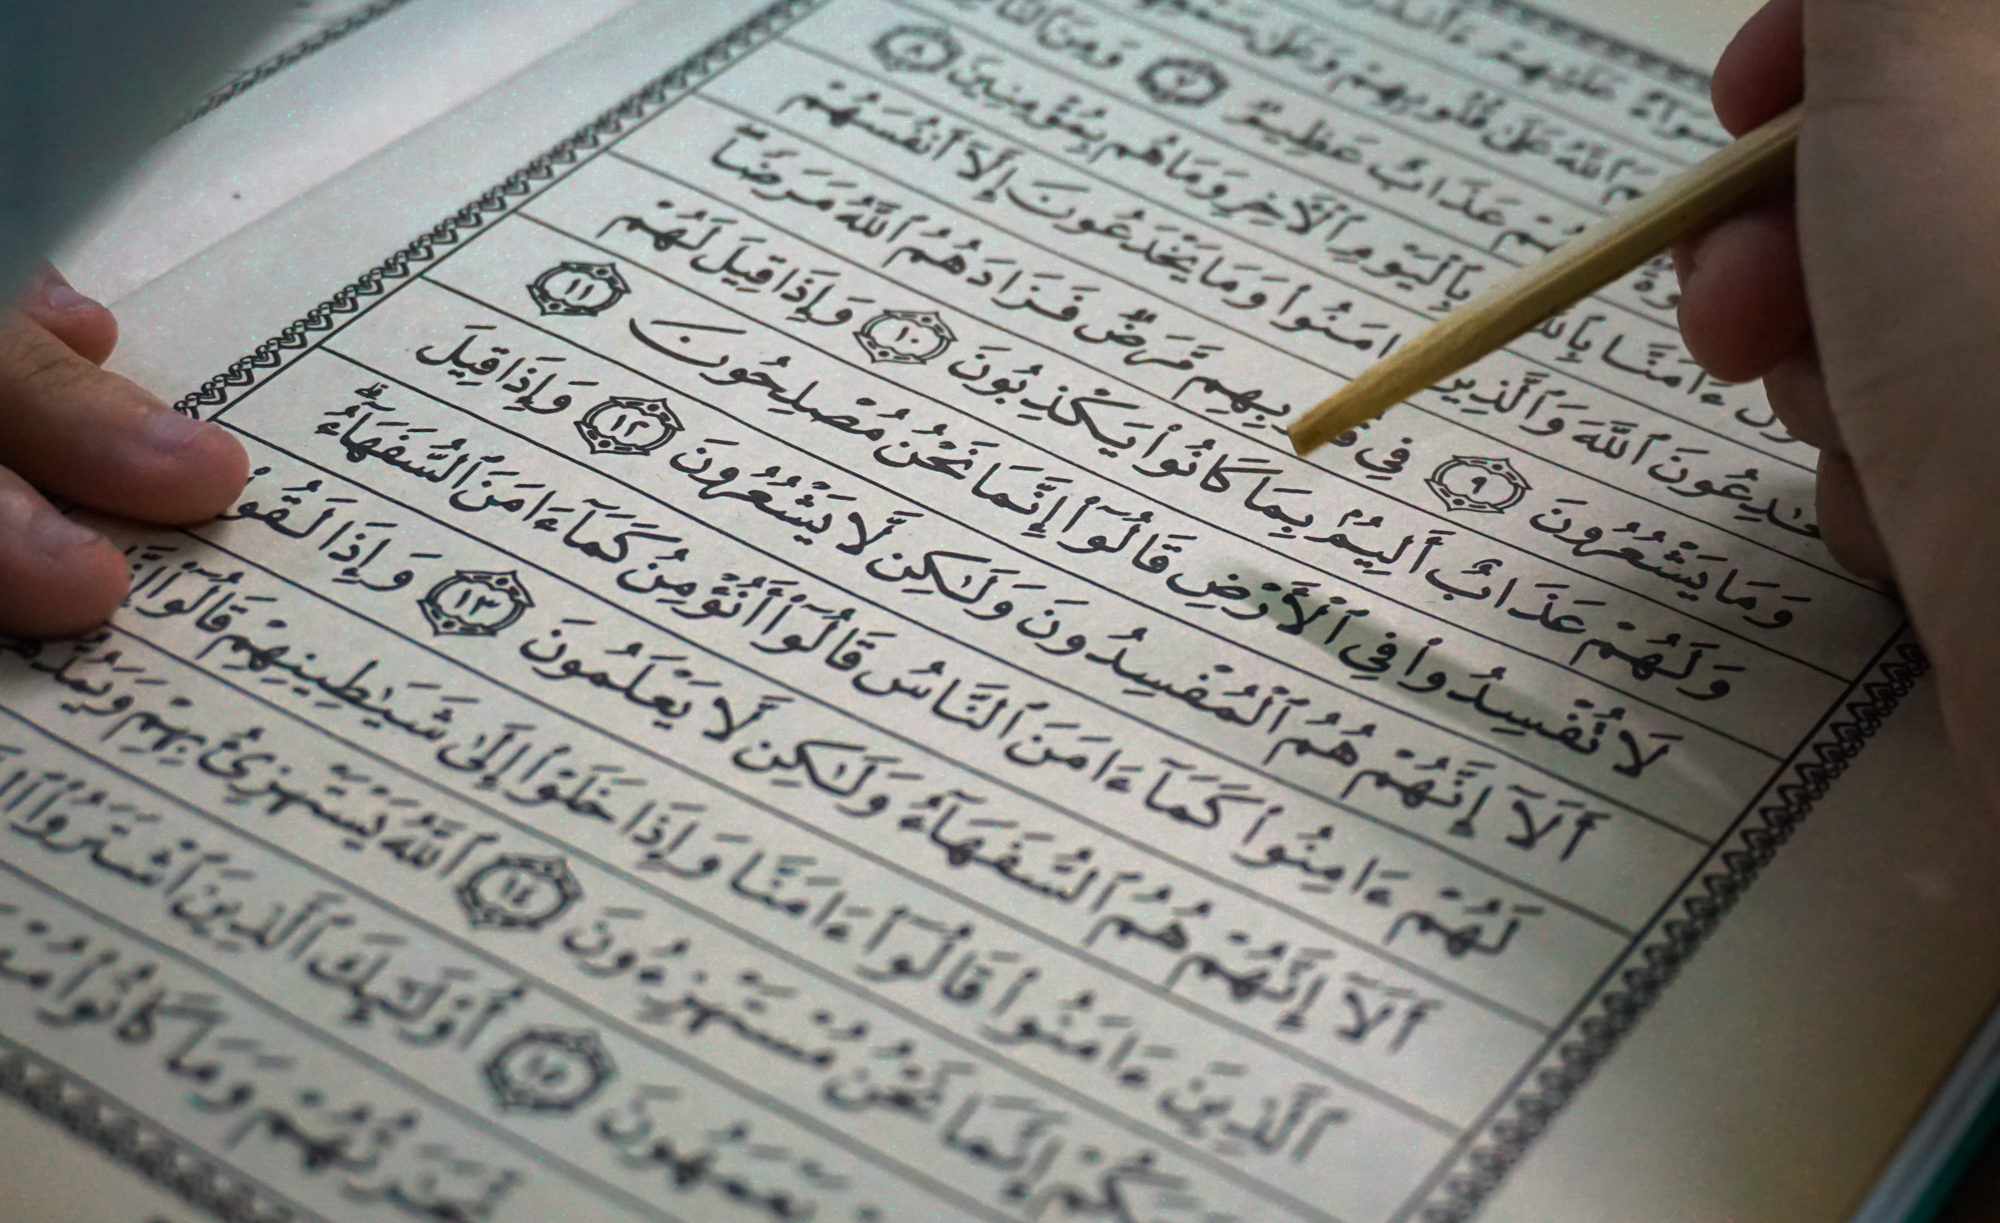 سَوَآءٌ عَلَيْهِمْ ءَأَنذَرْ
ٱللَّهُ عَلَىٰ قُلُوبِهِمْ وَعَلَىٰ سَمْعِهِمْ
عَذَابٌ عَظِيمٌ ٧ وَمِنَ ٱلنَّاسِ
ءَامَنَّا بِٱللَّهِ بِٱلْيَوْمِ ٱلْأَخِرِ وَمَا هُم بِمُؤْمِنِينَ ٨
يُخَٰدِعُونَ ٱللَّهَ وَٱلَّذِينَ ءَامَنُوا۟ وَمَا يَخْدَعُونَ إِلَّآ أَنفُسَهُمْ
وَمَا يَشْعُرُونَ ٩ فِي قُلُوبِهِم مَّرَضٌ فَزَادَهُمُ ٱللَّهُ مَرَضًا
وَلَهُمْ عَذَابٌ أَلِيمٌۢ بِمَا كَانُوا۟ يَكْذِبُونَ ١٠ وَإِذَا قِيلَ لَهُمْ
لَا تُفْسِدُوا۟ فِي ٱلْأَرْضِ قَالُوٓا۟ إِنَّمَا نَحْنُ مُصْلِحُونَ ١١
أَلَآ إِنَّهُمْ هُمُ ٱلْمُفْسِدُونَ وَلَٰكِن لَّا يَشْعُرُونَ ١٢ وَإِذَا قِيلَ
لَهُمْ ءَامِنُوا۟ كَمَآ ءَامَنَ ٱلنَّاسُ قَالُوٓا۟ أَنُؤْمِنُ كَمَآ ءَامَنَ ٱلسُّفَهَآءُ ۗ
أَلَآ إِنَّهُمْ هُمُ ٱلسُّفَهَآءُ وَلَٰكِن لَّا يَعْلَمُونَ ١٣ وَإِذَا لَقُوا۟
ٱلَّذِينَ ءَامَنُوا۟ قَالُوٓا۟ ءَامَنَّا وَإِذَا خَلَوْا۟ إِلَىٰ شَيَٰطِينِهِمْ قَالُوٓا۟ إِنَّا
مَعَكُمْ إِنَّمَا نَحْنُ مُسْتَهْزِءُونَ ١٤ ٱللَّهُ يَسْتَهْزِئُ بِهِمْ وَيَمُدُّهُمْ
يَعْمَهُونَ ١٥ أُو۟لَٰٓئِكَ ٱلَّذِينَ ٱشْتَرَوُا۟
تِّجَٰرَتُهُمْ وَمَا كَانُوا۟